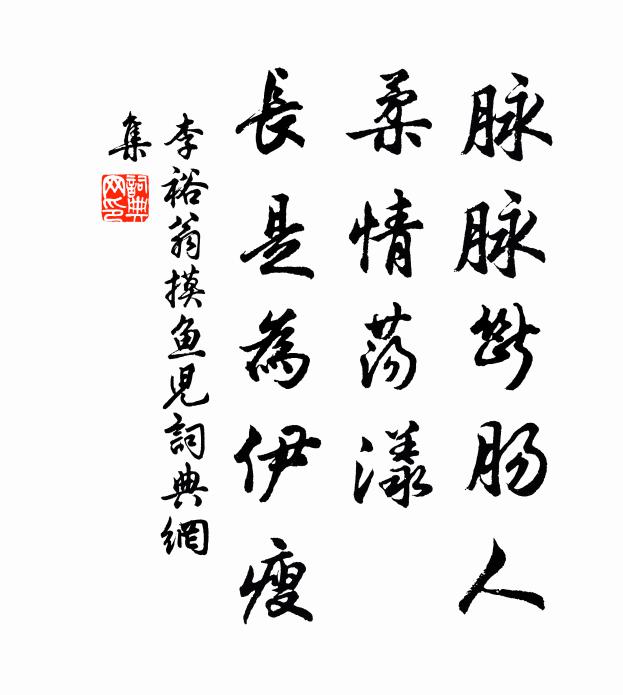 脉脉断肠人
柔情荡漾
長是為伊瘦
李裕翁摸鱼児詞典網
集
詞典
网印